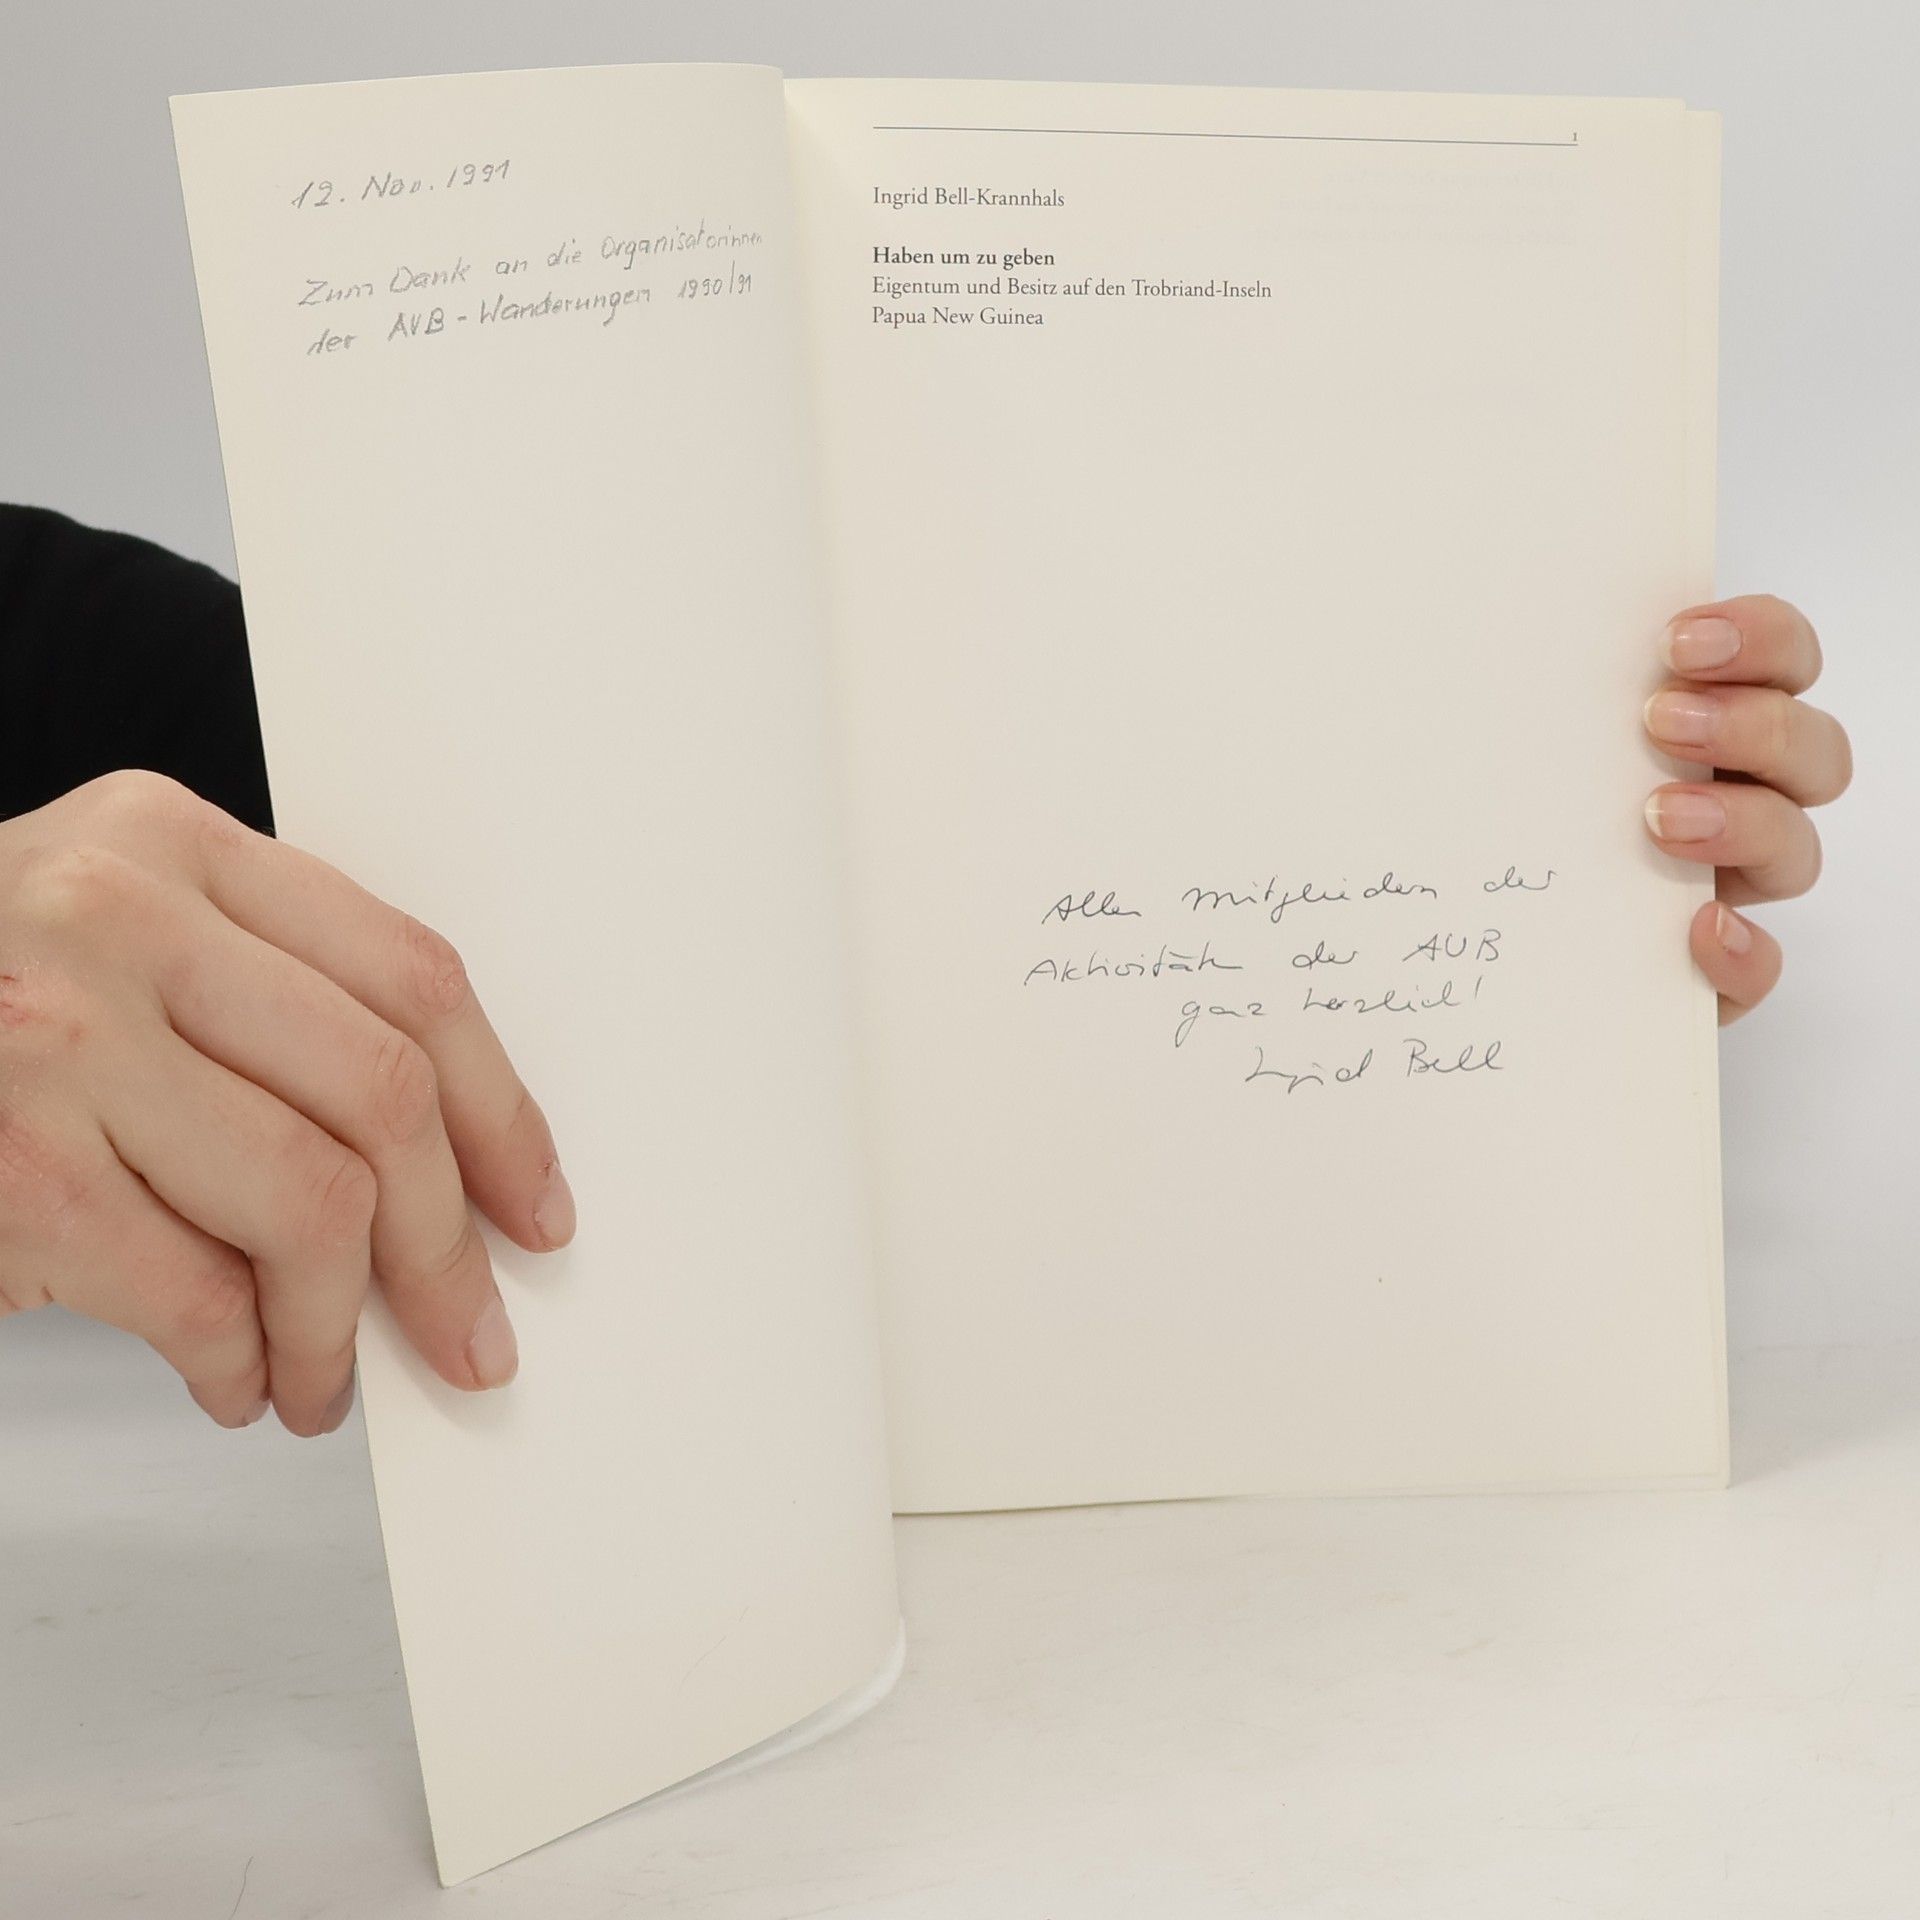 12. Nov. 1991
Zum Dank an die Organisatorinnen
der AVB-Wanderungen 1990/91
1
Ingrid Bell-Krannhals
Haben um zu geben
Eigentum und Besitz auf den Trobriand-Inseln
Papua New Guinea
Allen Mitgliedern der
Aktivitäten der AVB
ganz herzlich!
Ingrid Bell